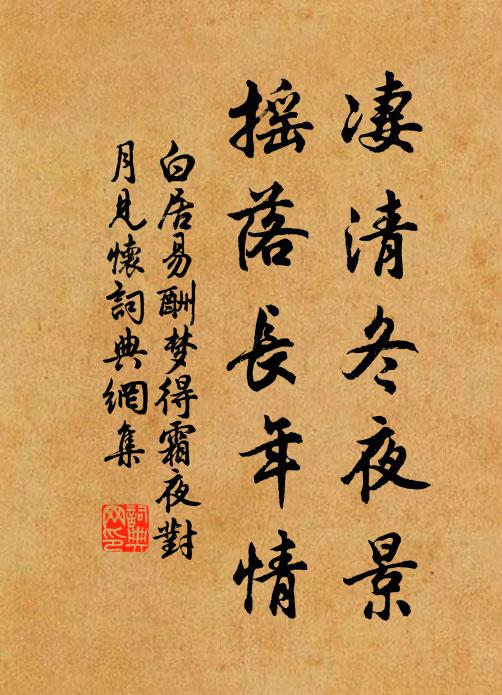 凄清冬夜景
摇落長年情
白居易酬梦得霜夜對
月見懷詞典網集
詞典网印